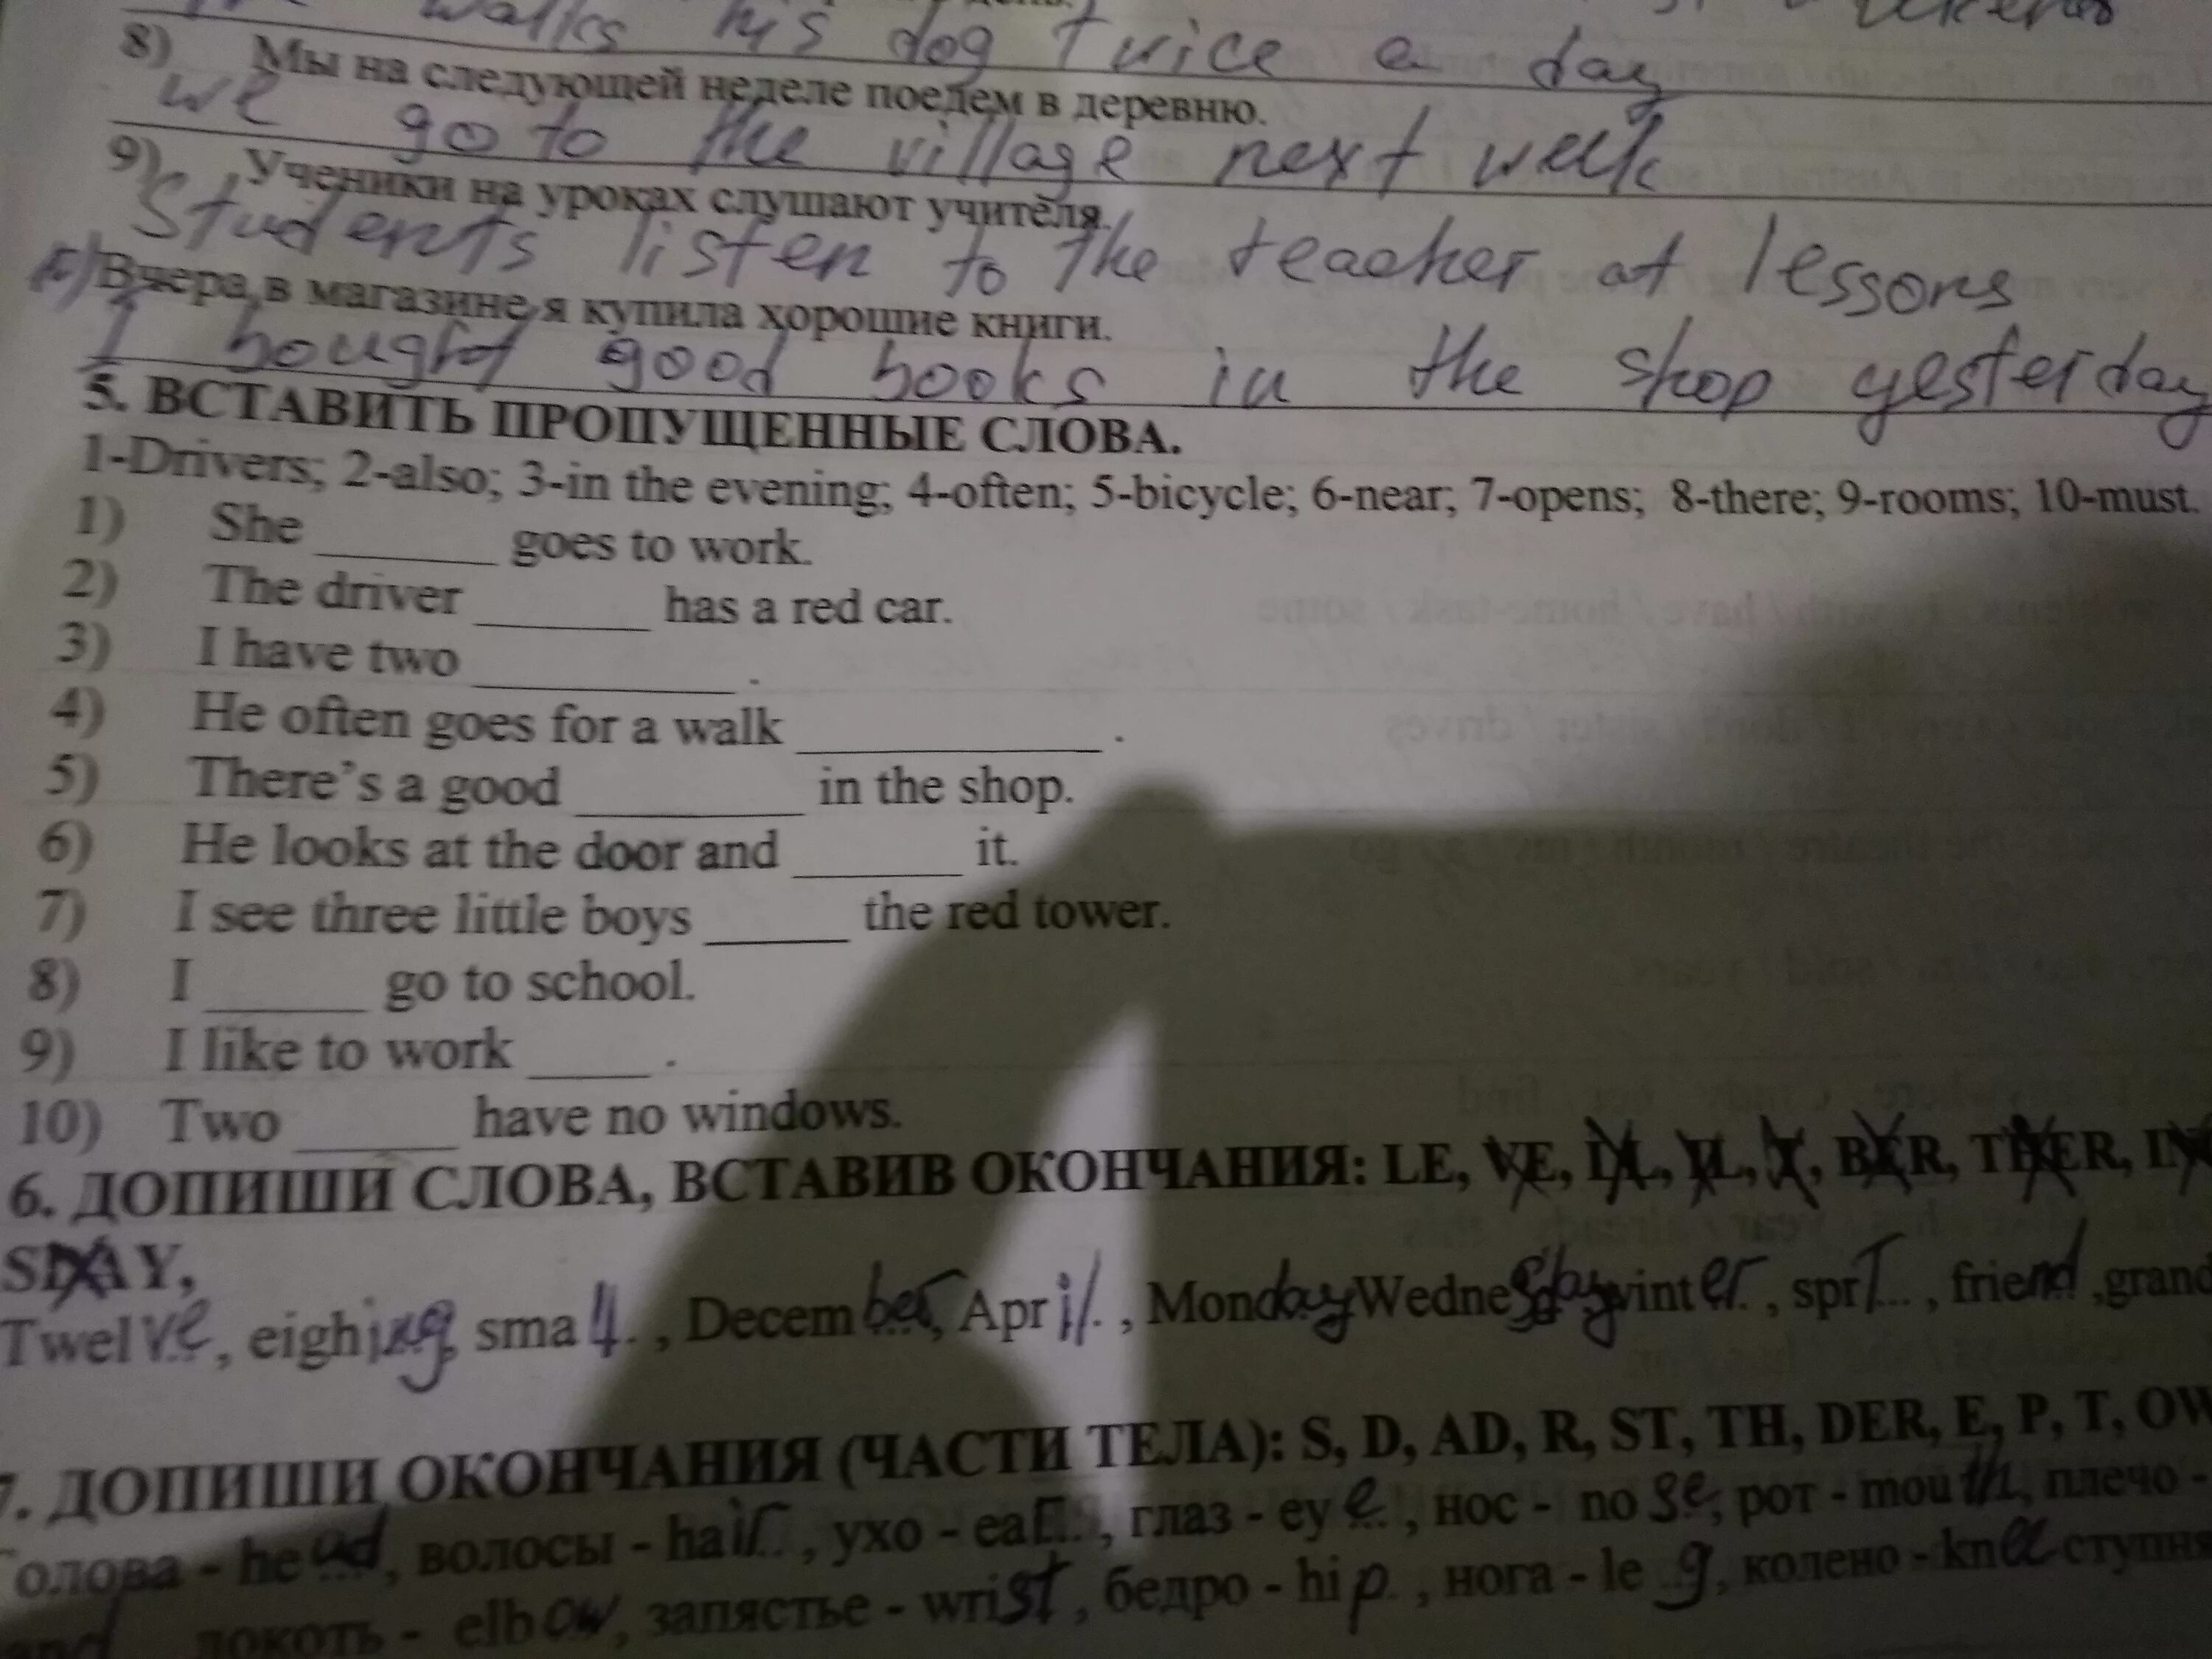 walks his dog twice a day
8) Мы на следующей неделе поедем в деревню.
we go to the village next week
9) Ученики на уроках слушают учителя.
Students listen to the teacher at lessons
Вчера в магазине я купила хорошие книги.
I bought good books in the shop yesterday
5. ВСТАВИТЬ ПРОПУЩЕННЫЕ СЛОВА.
1-Drivers; 2-also; 3-in the evening; 4-often; 5-bicycle; 6-near; 7-opens; 8-there; 9-rooms; 10-must.
1) She ______ goes to work.
2) The driver ______ has a red car.
3) I have two ______ .
4) He often goes for a walk ______ .
5) There's a good ______ in the shop.
6) He looks at the door and ______ it.
7) I see three little boys ______ the red tower.
8) I ______ go to school.
9) I like to work ____ .
10) Two ______ have no windows.
6. ДОПИШИ СЛОВА, ВСТАВИВ ОКОНЧАНИЯ: LE, VE, IL, L, T, BER, THER,
SDAY,
Twelve, eighing, small, December, April, Monday Wednesday winter, sprT..., friend, grand
7. ДОПИШИ ОКОНЧАНИЯ (ЧАСТИ ТЕЛА): S, D, AD, R, ST, TH, DER, E, P, T, OW
Голова - head, волосы - hair, ухо - ear, глаз - eye, нос - nose, рот - mouth, плечо -
локоть - elbow, запястье - wrist, бедро - hip, нога - leg, колено - knee ступня